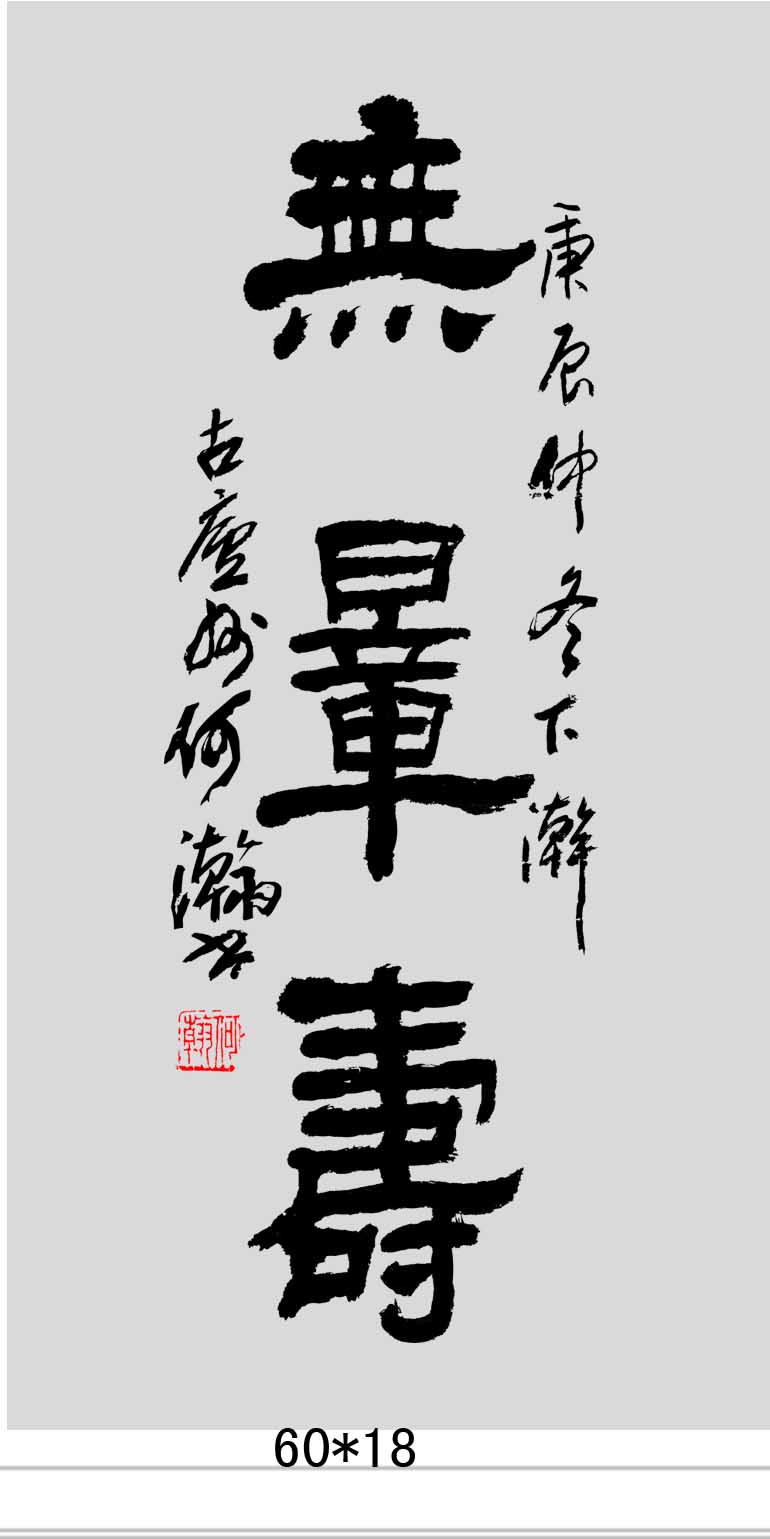 庚辰仲冬下澣
無量壽
古廬州何瀚書
何瀚
60*18